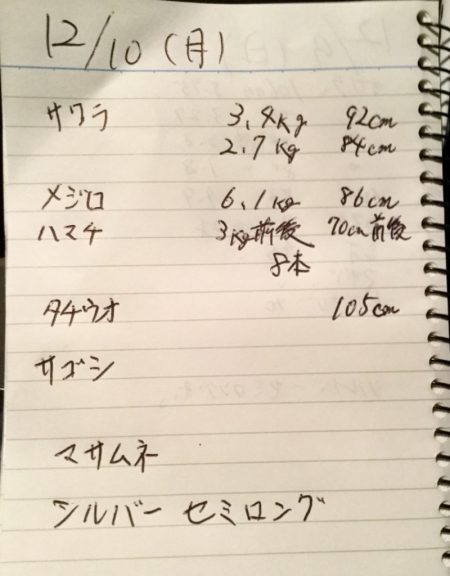 12/10 (月)
サワラ 3.4kg 92cm
2.7kg 84cm
メジロ 6.1kg 86cm
ハマチ 3kg前後 70cm前後
8本
タチウオ 105cm
サゴシ
マサムネ
シルバー セミロング